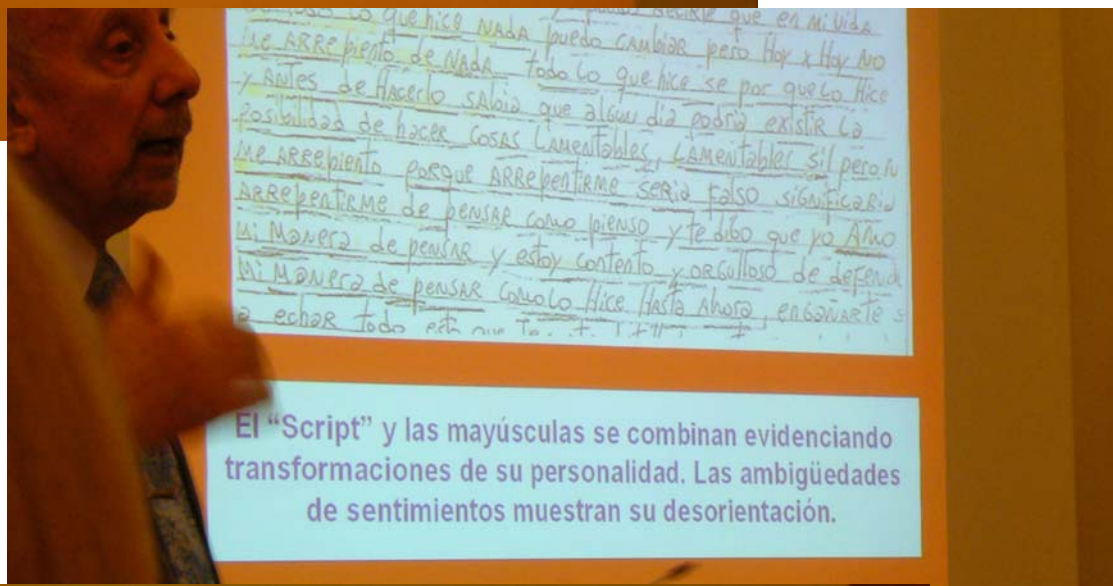 lo que hice NADA puedo decirle que en mi vida
ME ARREpiento de NADA puedo CAMbiar pero Hoy x Hoy NO
todo Lo que hice se por que Lo Hice
y ANTES de HAcerlo SAbia que algun dia podria existir La
posibilidad de hacer COSAS LAmentables, LAmentables si! pero
ME ARREpiento PORQUE ARREpentirme seria Falso SIGNIFICARIA
ARREpentirme de pensar como pienso y te digo que yo Amo
Mi Manera de pensar y estoy contento y orgulloso de
Mi Manera de pensar como Lo Hice Hasta Ahora, engañarte
a echar todo
El “Script” y las mayúsculas se combinan evidenciando
transformaciones de su personalidad. Las ambigüedades
de sentimientos muestran su desorientación.